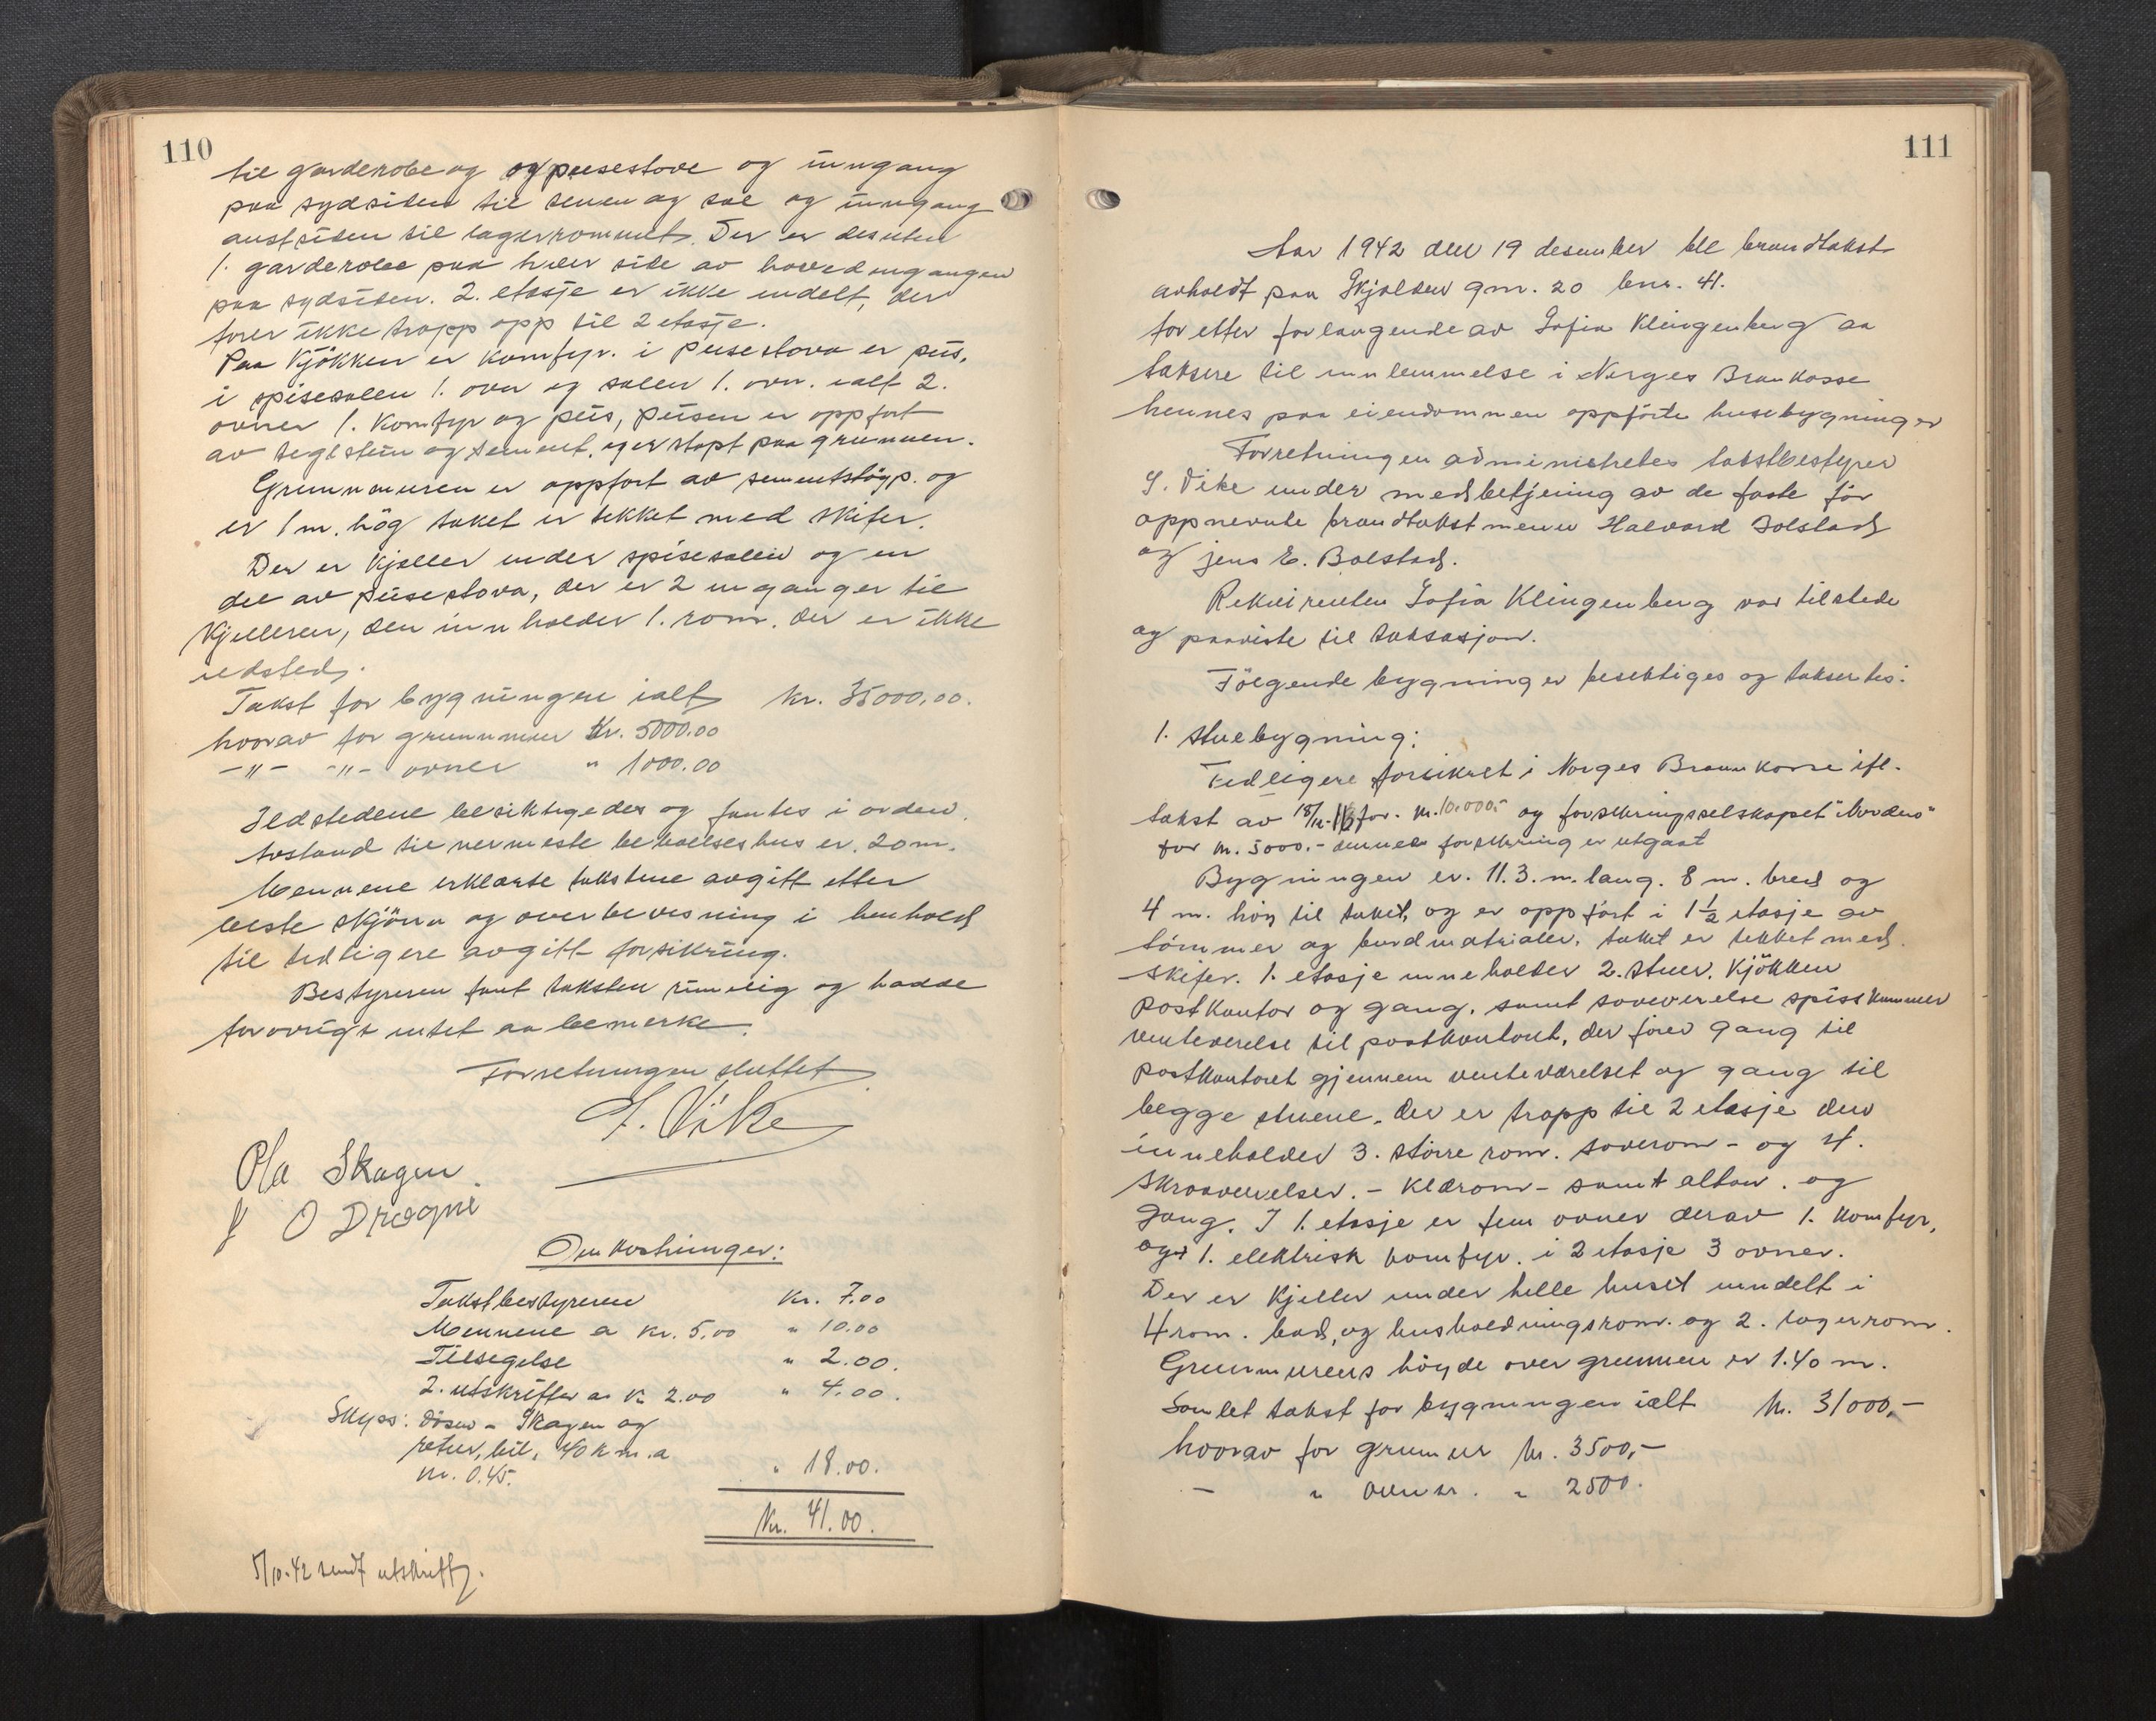 110
til garderobe og og peisestove og inngang
paa sydsiden til scenen og sal og inngang
austsiden til lagerrommet. Der er desuten
1. garderobe paa hver side av hovedingangen
paa sydsiden. 2. etasje er ikke indelt, der
fører ikke trapp opp til 2 etasje.
Paa kjøkken er komfyr. i peisestova er peis,
i spisesalen 1. ovn og salen 1. ovn. ialt 2.
ovner 1. komfyr og peis, peisen er oppført
av teglstein og sement. og er støpt paa grunnen.
Grunnmuren er oppført av sementstøyp. og
er 1 m. høg taket er tekket med skifer.
Der er kjeller under spisesalen og en
del av peisestova, der er 2 innganger til
kjelleren, den innholder 1. rom. der er ikke
ildsted.
Takst for bygningen ialt kr. 35000,00.
hvorav for grunnmur kr. 5000.00
-"- -"- ovner " 1000.00
Ildstedene besiktigedes og fantes i orden.
Avstand til nermeste beboelseshus er. 20 m.
Mennene erklærte takstene avgitt etter
beste skjønn og overbevisning i henhold
til tidligere avgitt forsikring.
Bestyreren fant taksten rimelig og hadde
forøvrigt intet aa bemerke.
Forretningen sluttet
S. Vike
Ola Skagen
J O Drægni
Omkostninger:
Takstbestyreren kr. 7.00
Mennene a kr. 5,00 " 10.00
Tilsigelse " 2.00.
2. utskrifter a k 2.00 " 4.00.
Skyss: Døsen - Skagen og
retur, bil, 40 km. a
kr. 0.45. " 18.00.
Kr. 41.00.
5/10-42 sendt utskrift.
111
Aar 1942 den 19 desember ble brandtakst
avholdt paa Skjolden gnr. 20 bnr. 41.
for etter forlangende av Sofia Klingenberg aa
taksere til innlemmelse i Norges Brankasse
hennes paa eiendommen oppførte husebygninger
Forretningen administretes takstbestyrer
S. Vike under medbetjening av de faste før
oppnevnte brandtakstmenn Halvard Bolstad
og Jens E. Bolstad.
Rekvirenten Sofia Klingenberg var tilstede
og paaviste til taksasjon.
Følgende bygninger besiktiges og taksertes:
1. Stuebygning:
Tidligere forsikret i Norges Brannkasse ifl.
takst av 18/11-16 for. kr. 10.000,- og forsikringsselskapet "Norden"
for kr. 5000.- denne forsikring er utgaat
Bygningen er. 11.3. m. lang. 8 m. bred og
4 m. høy til taket, og er oppført i 1½ etasje av
tømmer og bordmatrialer, taket er tekket med
skifer. 1. etasje inneholder 2. stuer, kjøkken
postkontor og gang, samt soveverelse spisskammer
venteverelse til postkontoret, der fører gang til
postkontoret gjennem venteværelset og gang til
begge stuene. der er trapp til 2 etasje den
inneholder 3. større rom. soverom - og 4.
skraaverelser. - klærom - samt altan. og
gang. I 1. etasje er fem ovner derav 1. komfyr,
og 1. elektrisk komfyr. i 2 etasje 3 ovner.
Der er kjeller under helle huset inndelt i
4 rom. bad, og husholdningsrom. og 2. lagerrom.
Grunnmurens høyde over grunnen er 1.40 m.
Samlet takst for bygningen ialt kr. 31000,-
hvorav for grunmur kr. 3500,-
- " ovner. " 2500.